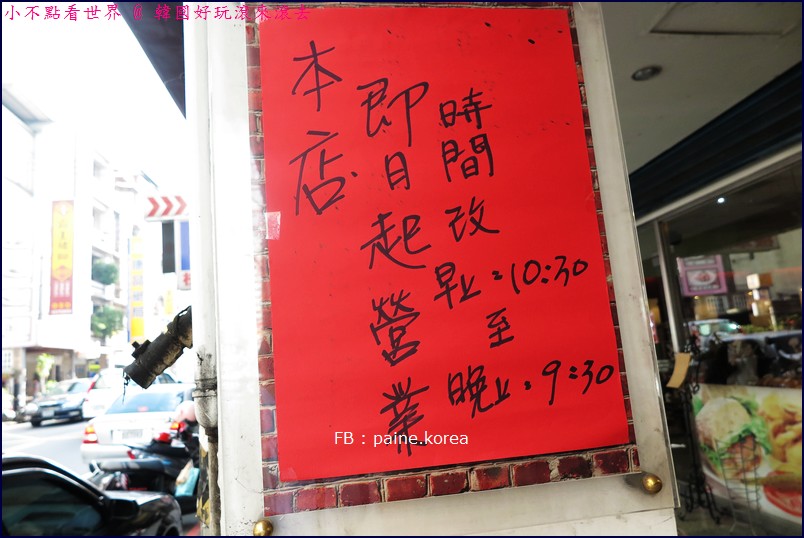 小不點看世界 @ 韓國好玩滾來滾去
本店
即日起營業
時間改
早上：10:30
至
晚上：9:30
FB : paine.korea